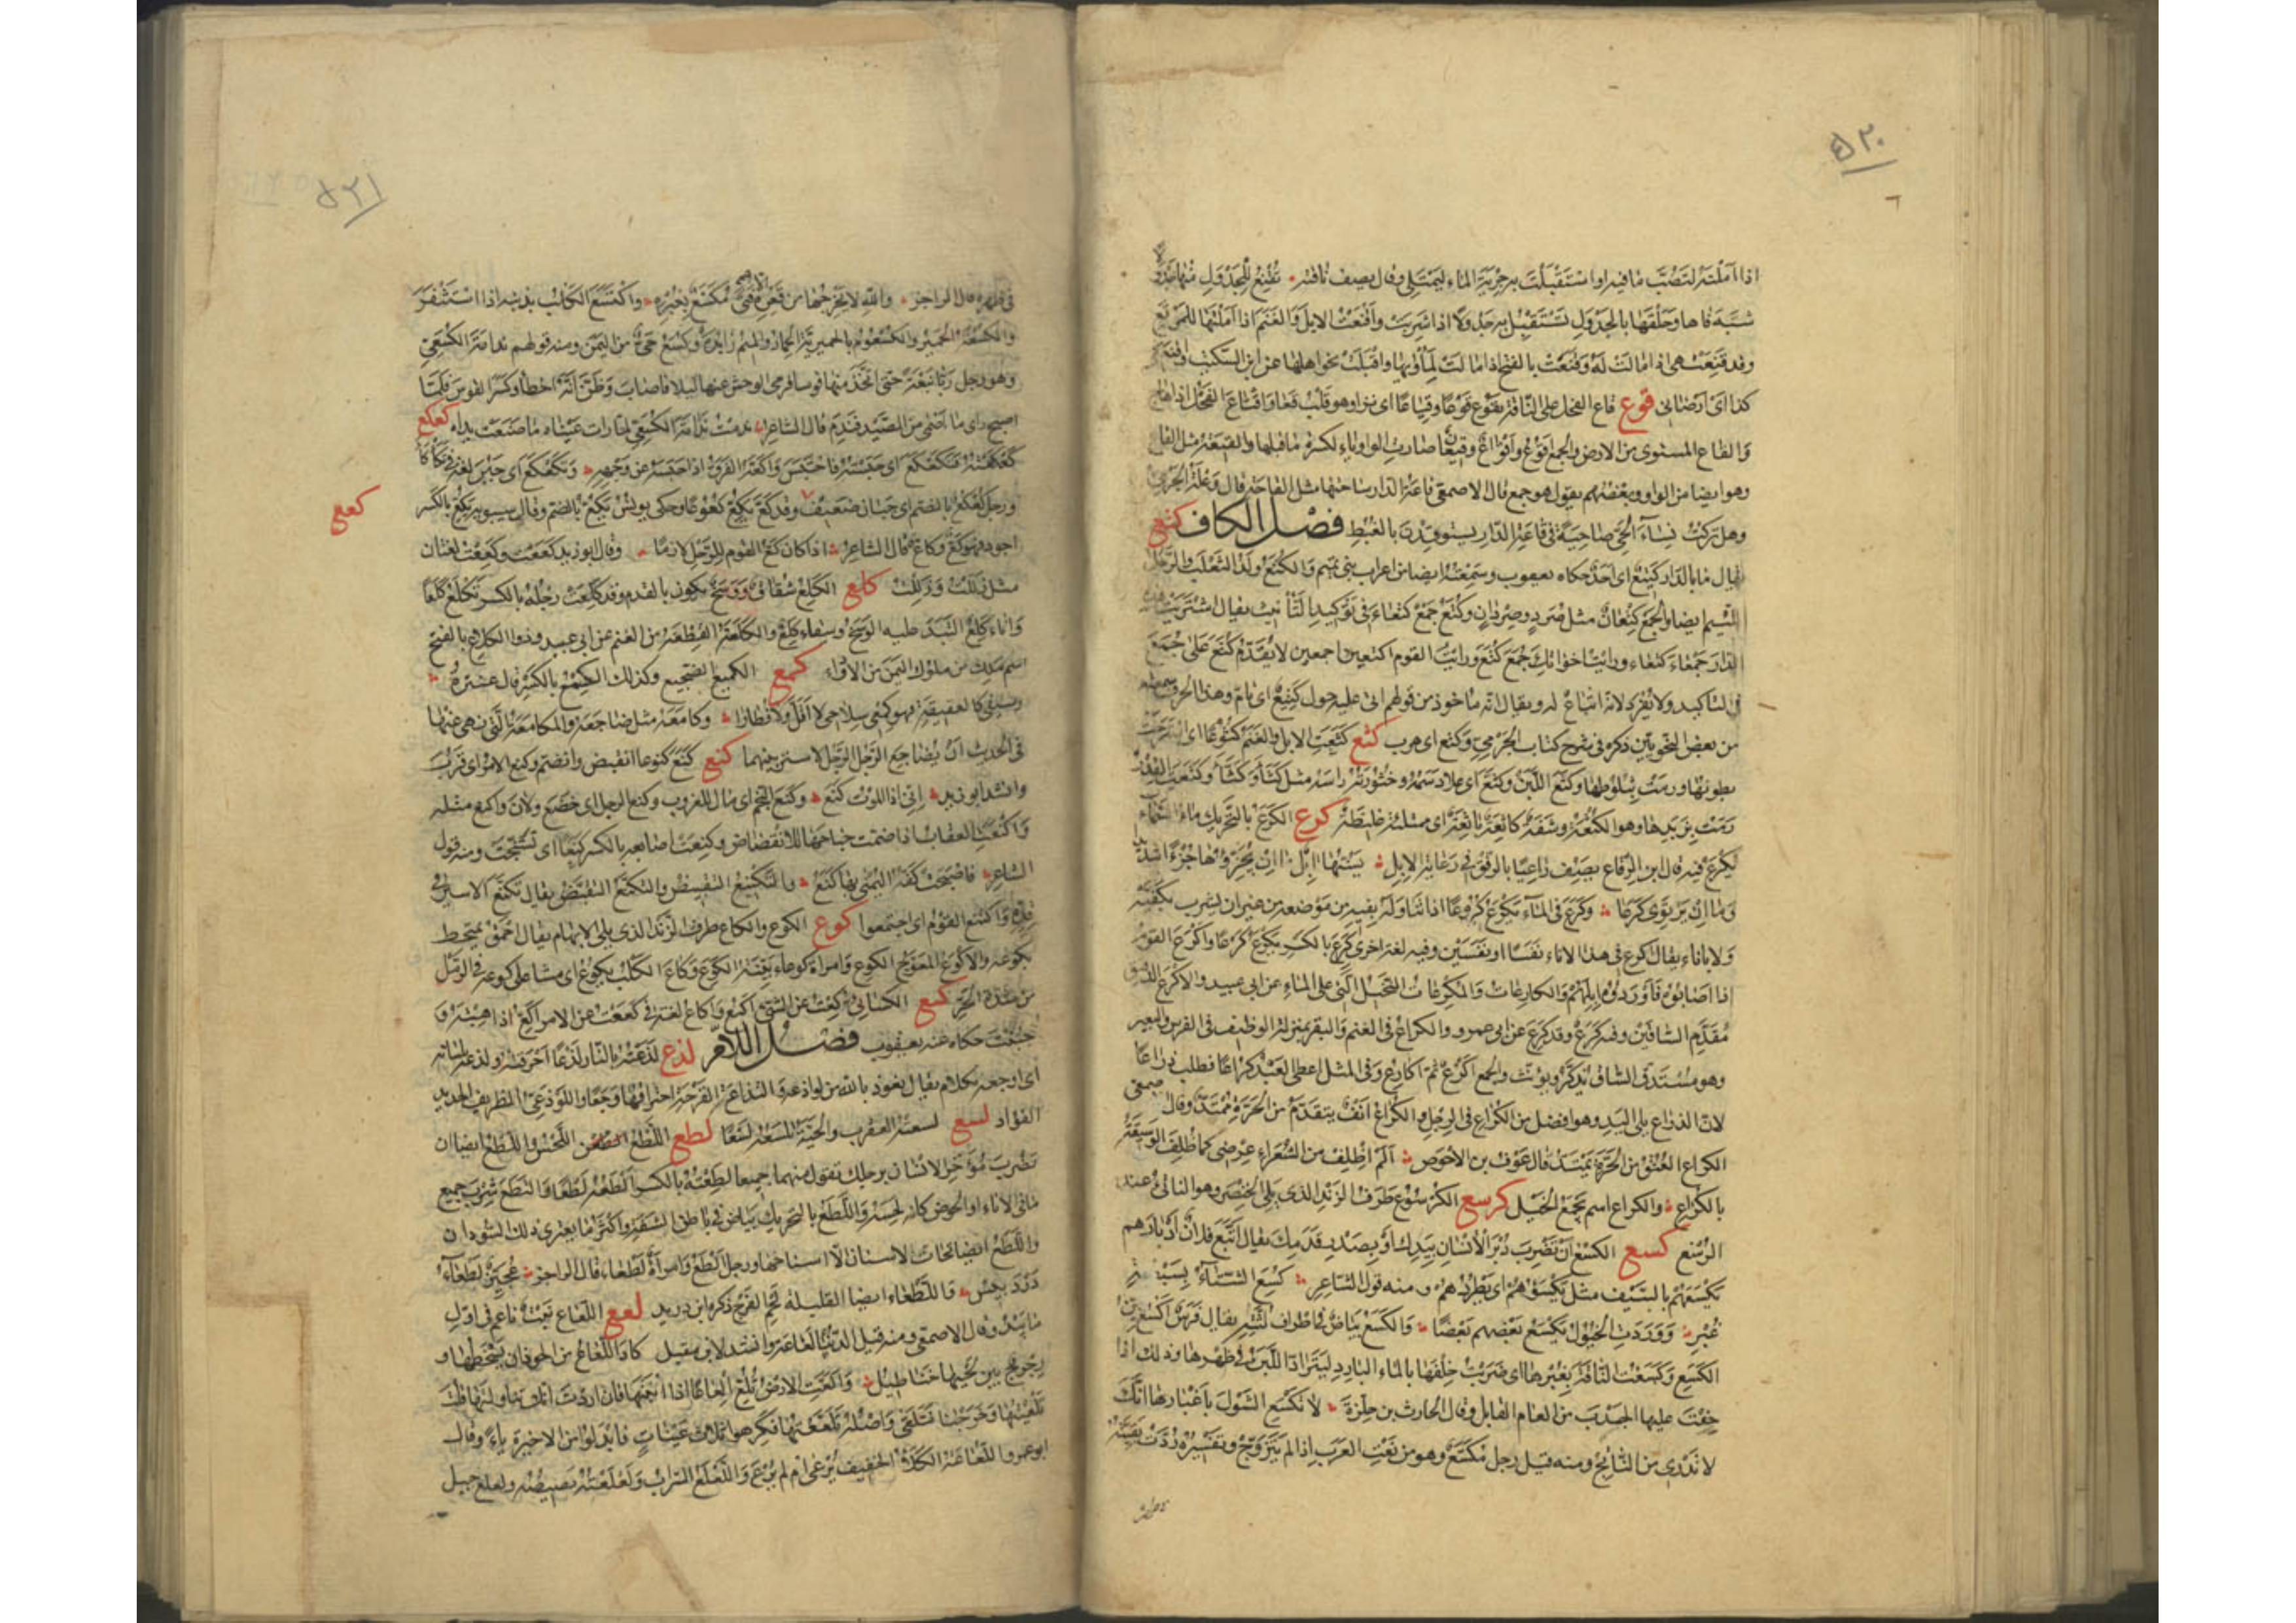 ٥٢٠
اذا املته لتصب ما فيه او استقبلت به جرية الماء ليمتلئ وقال يصف ناقته تقنع للجدول منها جدولا
شبه فاها وحلقها بالجدول تستقبل به جدولا اذا شربت واقنعت الابل والغنم اذا املتها للمرتع
وقد قنعت هى اذا مالت له وقنعت بالفتح اذا مالت لمأويها واقبلت نحو اهلها عن ابن السكيت واقنعنى
كذا اى ارضانى قوع قاع الفحل على الناقة يقوع قوعا وقياعا اى نزا وهو قلب قعا واقتاع الفحل اذا هاج
والقاع المستوى من الارض والجمع اقوع واقواع وقيعان صارت الواو ياء لكسرة ما قبلها والقيعة مثل القاع
وهو ايضا من الواو وبعضهم يقول هو جمع قال الاصمعى قاعة الدار ساحتها مثل القاحة قال وعلة الجرمى
وهل تركت نساء الحى ضاحية فى قاعة الدار يستوقدن بالغبط فصل الكاف كتع
يقال ما بالدار كتيع اى احد حكاه يعقوب وسمعته ايضا من اعراب بنى تميم والكتع ولد الثعلب والرجل
اللئيم ايضا والجمع كتعان مثل صرد وصردان وكتع جمع كتعاء فى توكيد التأنيث يقال اشتريت هذه
الدار جمعاء كتعاء ورايت اخواتك جمع كتع ورايت القوم اجمعين اكتعين لا يقدم كتع على جمع
فى التاكيد ولا يفرد لانه اتباع له ويقال انه ماخوذ من قولهم اتى عليه حول كتيع اى تام وهذا الحرف سمعته
من بعض النحويين ذكره فى شرح كتاب الجرمى وكتع اى هرب كثع كثعت الابل والغنم كثوعا اى استرخت
بطونها ورمت بثلوطها وكثع اللبن وكثع اى علا دسمه وخثورته راسه مثل كثأ وكثأ وكثعت القدر
رمت بزبدها وهو الكثعة وشفة كاثعة باثعة اى ممتلئة غليظة كرع الكرع بالتحريك ماء السماء
يكرع فيه قال ابن الرقاع يصف راعيا بالرفق فى رعاية الابل يسنها ابل ما ان يجزئها جزءا شديدا
وما ان ترتوى كرعا وكرع فى الماء يكرع كروعا اذا تناوله بفيه من موضعه من غير ان يشرب بكفيه
ولا باناء يقال اكرع فى هذا الاناء نفسا او نفسين وفيه لغة اخرى كرع بالكسر يكرع كرعا واكرع القوم
اذا اصابوه فاوردوه ابلهم والكارعات والمكرعات النخيل التى على الماء عن ابى عبيد والاكرع الدقيق
مقدم الساقين وفيه كرع وقد كرع عن ابى عمرو والكراع فى الغنم والبقر بمنزلة الوظيف فى الفرس والبعير
وهو مستدق الساق يذكر ويؤنث والجمع اكرع ثم اكارع وفى المثل اعطى العبد كراعا فطلب ذراعا
لان الذراع يلى اليد وهو افضل من الكراع فى الرجل والكراع انف يتقدم من الحرة ممتد وقال الاصمعى
الكراع العنق من الحرة يمتد قال عوف بن الاحوص الم اظلف من الشعراء عرضى كما ظلف الوسيقة
بالكراع والكراع اسم يجمع الخيل كرسع الكرسوع طرف الزند الذى يلى الخنصر وهو الناتئ عند
الرسغ كسع الكسع ان تضرب دبر الانسان بيدك او بصدر قدمك يقال اتبع فلان ادبارهم
يكسعهم بالسيف مثل يكسؤهم اى يطردهم ومنه قول الشاعر كسع الشتاء بسبعة
غبر ووردت الخيول يكسع بعضهم بعضا والكسع بياض فى اطراف الثنة يقال فرس اكسع بين
الكسع وكسعت الناقة بغبرها اى ضربت خلفها بالماء البارد ليتراد اللبن فى ظهرها وذلك اذا
خفت عليها الجدب من العام القابل وقال الحارث بن حلزة لا تكسع الشول باغبارها انك
لا تدرى من الناتج ومنه قيل رجل مكسع وهو من نعت العزب اذا لم يتزوج وتفسيره ردت بقيته
٥٢١
فى ظهره قال الراجز والله لا يخرجها من قعره الا فتى مكسع بغبره واكتسع الكلب بذنبه اذا استثفر
والكسعة الحمير والكسعوم بالحميرية الحمار والميم زائدة وكسع حى من اليمن ومنه قولهم ندامة الكسعى
وهو رجل ربا نبعة حتى اتخذ منها قوسا فرمى الوحش عنها ليلا فاصاب وظن انه اخطأ وكسر القوس فلما
اصبح راى ما اصمى من الصيد فندم قال الشاعر ندمت ندامة الكسعى لما رات عيناه ما صنعت يداه كعكع
كعكعته فتكعكع اى حبسته فاحتبس واكعه الفرق اذا حبسه عن وجهه وتكعكع اى جبن لغة فى تكأكأ
كعع
ورجل كعكع بالضم اى جبان ضعيف وقد كع يكع كعوعا وحكى يونس يكع بالضم وقال سيبويه يكع بالكسر
اجود فهو كع وكاع قال الشاعر اذا كان كع القوم للرحل لازما وقال ابو زيد كععت وكععت لغتان
مثل زللت وزللت كلع الكلع شقاق ووسخ يكون بالقدم وقد كلعت رجله بالكسر تكلع كلعا
واناء كلع التبد عليه الوسخ وسقاء كلع والكلعة القطعة من الغنم عن ابى عبيد وذو الكلاع بالفتح
اسم ملك من ملوك اليمن من الاذواء كمع الكميع الضجيع وكذلك الكمع بالكسر قال عنترة
وسيفى كالعقيقة فهو كمعى سلاحى لا افل ولا فطارا وكامعه مثل ضاجعه والمكامعة التى نهى عنها
فى الحديث ان يضاجع الرجل الرجل لا ستر بينهما كنع كنع كنوعا انقبض وانضم وكنع الامر اى قرب
وانشد ابو زيد انى اذا الموت كنع وكنع النجم اى مال للغروب وكنع الرجل اى خضع ولان واكنع مثله
واكنعت العقاب اذا ضمت جناحها للانقضاض وكنعت اصابعه بالكسر كنعا اى تشنجت ومنه قول
الشاعر فاصبحت كفه اليمنى بها كنع والتكنيع التقبيض والتكنع التقبض يقال تكنع الاسير فى
قده واكتنع القوم اى اجتمعوا كوع الكوع والكاع طرف الزند الذى يلى الابهام يقال احمق يمتخط
بكوعه والاكوع المعوج الكوع وامراة كوعاء بينة الكوع وكاع الكلب يكوع اى مشى على كوعه فى الرمل
من شدة الحر كيع الكسائى كعت عن الشئ اكيع واكاع لغة فى كععت عن الامر اكع اذا هبته و
جبنت حكاه عنه يعقوب فصل اللام لذع لذعته بالنار لذعا احرقته ولذعه بلسانه
اى اوجعه بكلام يقال نعوذ بالله من لواذعه والتذاع القرحة احتراقها وجعا واللوذعى الظريف الحديد
الفؤاد لسع لسعته العقرب والحية تلسعه لسعا لطع اللطع اللحس واللطع ايضا ان
تضرب مؤخر الانسان برجلك تقول منهما جميعا لطعته بالكسر الطعه لطعا والتطع شرب جميع
ما فى الاناء او الحوض كانه لحسه واللطع بالتحريك بياض فى باطن الشفة واكثر ما يعترى ذلك السودان
واللطع ايضا تحات الاسنان الا اسناخها ورجل الطع وامراة لطعاء قال الراجز عجيز لطعاء
دردبيس واللطعاء ايضا القليلة لحم الفرج ذكره ابن دريد لعع اللعاع نبت ناعم فى اول
ما يبدو قال الاصمعى ومنه قيل الدنيا لعاعة وانشد لابن مقبل كاد اللعاع من الحوذان يسحطها و
رجرج بين لحييها خناطيل والعت الارض تلع العاعا اذا انبتتها فان اردت انك تناولتها قلت
تلعيتها وخرجنا نتلعى واصله نتلعع فكرهوا ثلاث عينات فابدلوا من الاخيرة ياء وقال
ابو عمرو اللعاعة الكلأ الخفيف رعى ام لم يرع واللعلع السراب ولعلعته بصيصته ولعلع جبل